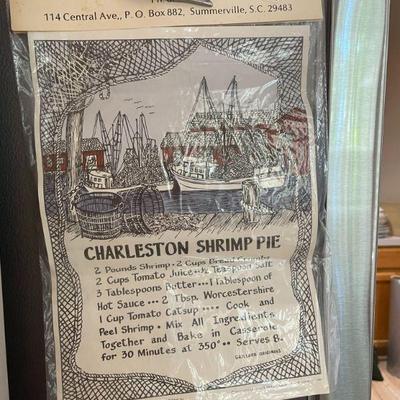 114 Central Ave,, P. O. Box 882, Summerville, S.C. 29483
CHARLESTON SHRIMP PIE
2 Pounds Shrimp • 2 Cups Bread Crumbs
2 Cups Tomato Juice •• ½ Teaspoon Salt
3 Tablespoons Butter ... 1 Tablespoon of
Hot Sauce ••• 2 Tbsp. Worcestershire
1 Cup Tomato Catsup .... Cook and
Peel Shrimp • Mix All Ingredients
Together and Bake in Casserole
for 30 Minutes at 350° •• Serves 8.